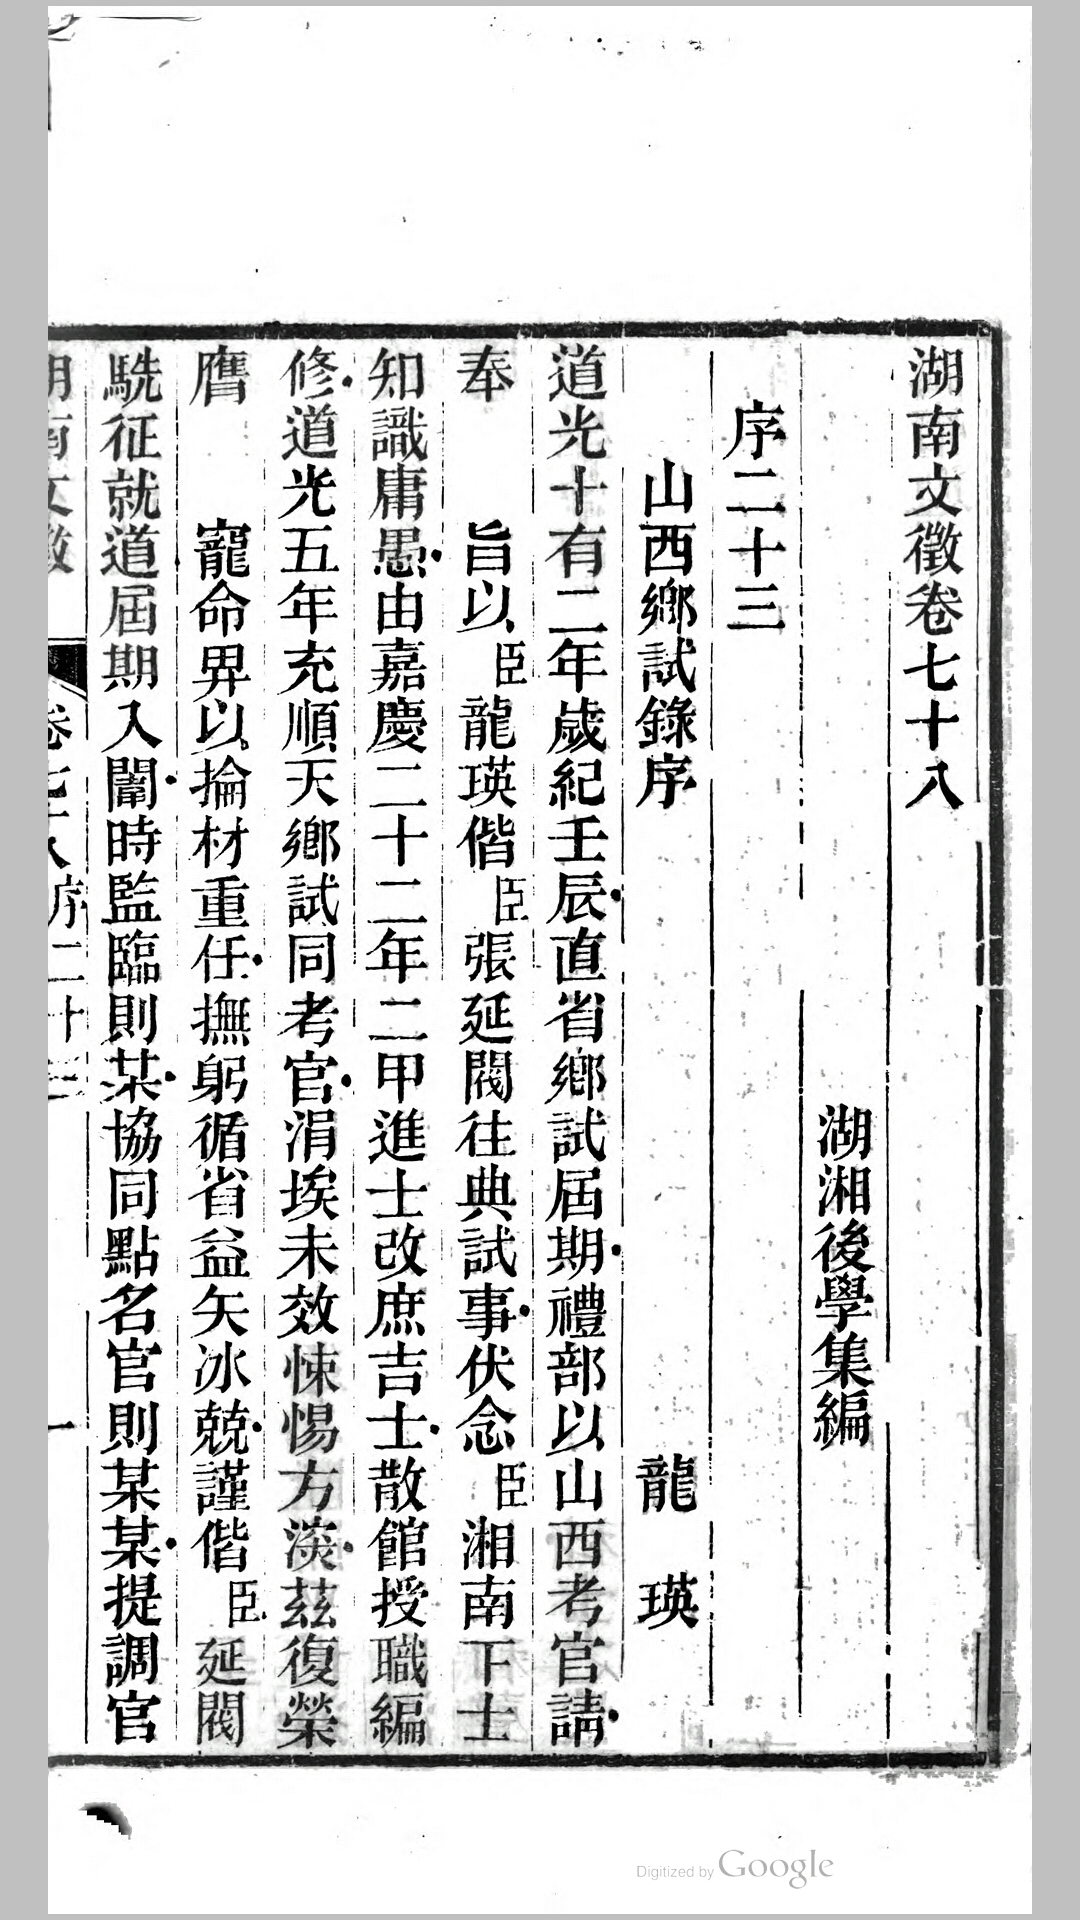 湖南文徵卷七十八
湖湘後學集編
序二十三
山西鄉試錄序　龍　瑛
道光十有二年歲紀壬辰直省鄉試屆期禮部以山西考官請
奉　旨以臣龍瑛偕臣張延閥往典試事伏念臣湘南下士
知識庸愚由嘉慶二十二年二甲進士改庶吉士散館授職編
修道光五年充順天鄉試同考官涓埃未效悚惕方淡茲復榮
膺　寵命畀以掄材重任撫躬循省益矢冰兢謹偕臣延閥
駪征就道屆期入闈時監臨則某協同點名官則某某提調官
湖南文徵　卷七十八序二十三　一
Digitized by Google